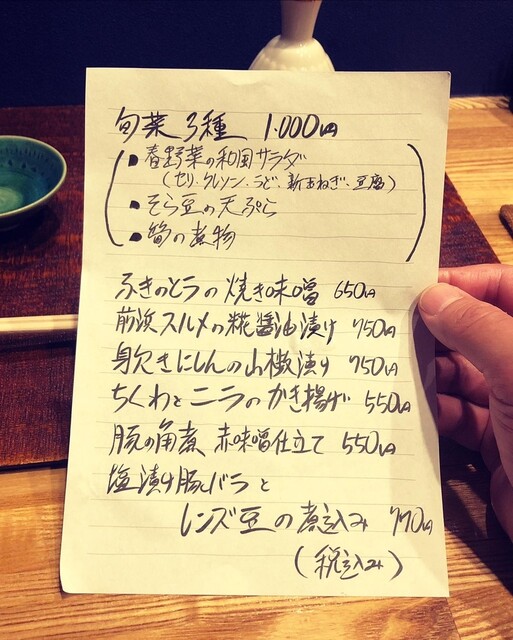 旬菜 3種 1.000円
・春野菜の和風サラダ
(セリ、クレソン、うど、新玉ねぎ、豆腐)
・そら豆の天ぷら
・筍の煮物
ふきのとうの焼き味噌 650円
前浜スルメの糀醤油漬け 750円
身欠きにしんの山椒漬け 750円
ちくわとニラのかき揚げ 550円
豚の角煮 赤味噌仕立て 550円
塩漬け豚バラと
レンズ豆の煮込み 770円
(税込み)